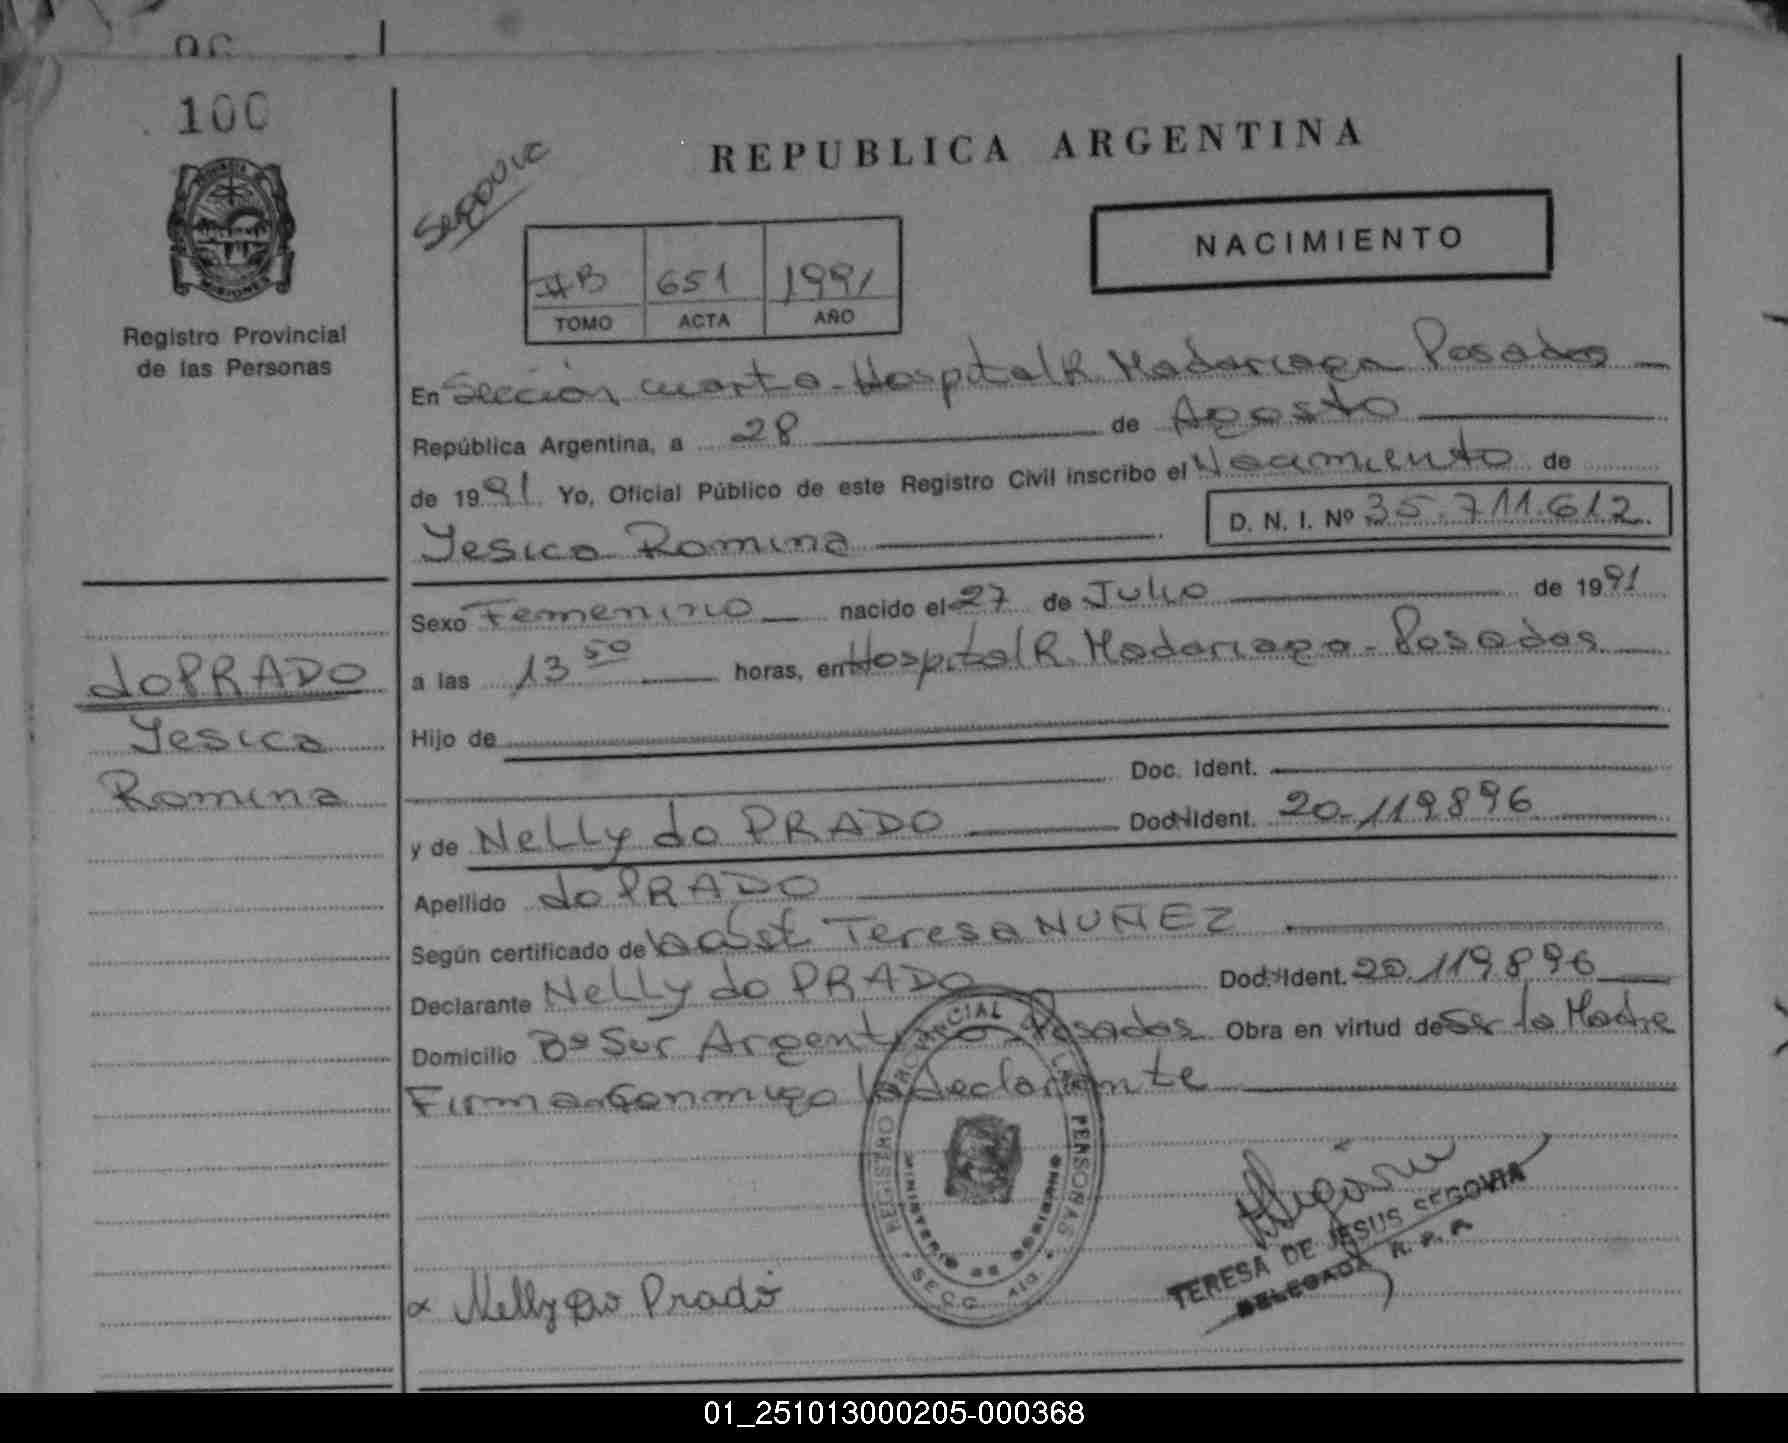 100
REPUBLICA ARGENTINA
Segovia
NACIMIENTO
MISIONES
Registro Provincial
de las Personas
B 651 1991
TOMO ACTA AÑO
En Sección cuarta - Hospital R. Madariaga Posadas
República Argentina, a 28 de Agosto
de 1991 Yo, Oficial Público de este Registro Civil inscribo el Nacimiento de
Yesica Romina D. N. I. Nº 35.711.612
Sexo Femenino nacido el 27 de Julio de 1991
doPRADO
Yesica
Romina
a las 13 50 horas, en Hospital R. Madariaga - Posadas
Hijo de
Doc. Ident.
y de Nelly do PRADO Doc. Ident. 20.119896
Apellido do PRADO
Según certificado de la obst Teresa NUÑEZ
Declarante Nelly do PRADO Doc. Ident. 20.119.896
Domicilio Bº Sur Argentino Posadas Obra en virtud de Ser la Madre
Firma Conmigo la declarante
REGISTRO PROVINCIAL DE LAS PERSONAS
MINISTERIO DE GOBIERNO
TERESA DE JESUS SEGOVIA
DELEGADA R. P. P.
x Nelly Do Prado
01_251013000205-000368